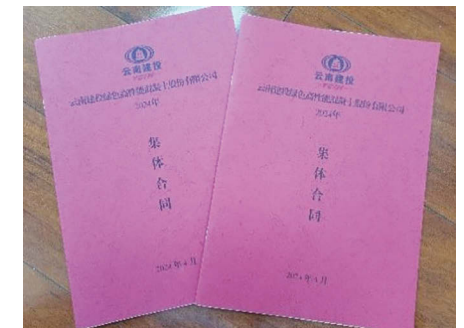 云南建投
云南建投绿色高性能混凝土股份有限公司
2024年
集
体
合
同
2024年4月
云南建投
云南建投绿色高性能混凝土股份有限公司
2024年
集
体
合
同